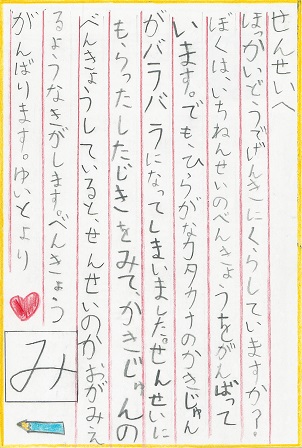 せんせいへ
ほっかいどうでげんきにくらしていますか？
ぼくは、いちねんせいのべんきょうをがんばって
います。でも、ひらがなカタカナのかきじゅん
がバラバラになってしまいました。せんせいに
もらったしたじきをみて、かきじゅんの
べんきょうしていると、せんせいのかおがみえ
るようなきがします。べんきょう
がんばります。ゆいとより
み